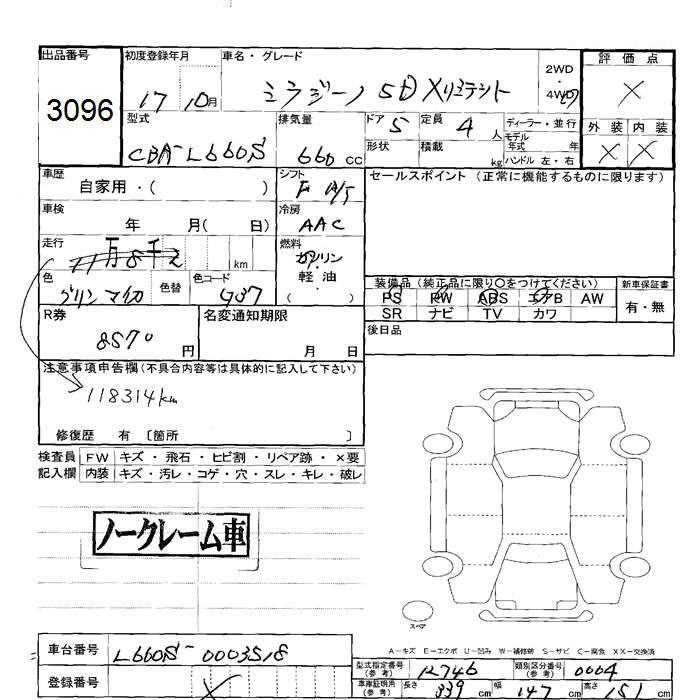 出品番号
3096
初度登録年月
17 10月
車名・グレード
ミラジーノ 5D Xリミテッド
2WD
・
4WD
評価点
X
型式
CBA-L660S
排気量
660 cc
ドア 5
形状
定員 4 人
積載 kg
ディーラー・並行
モデル年式 年
ハンドル 左・右
外装 内装
X X
車歴
自家用・( )
シフト
F A/5
セールスポイント (正常に機能するものに限ります)
車検
年 月( 日)
冷房
AAC
走行
11万8千
km
燃料
ガソリン
・
軽油
( )
色
グリンマイカ
色替
色コード
G37
装備品 (純正品に限り〇をつけてください)
PS PW ABS エアB AW
SR ナビ TV カワ
新車保証書
有・無
R券
8570 円
名変通知期限
月 日
後日品
注意事項申告欄 (不具合内容等は具体的に記入して下さい)
118314km
修復歴 有 〔箇所 〕
検査員 FW キズ・飛石・ヒビ割・リペア跡・×要
記入欄 内装 キズ・汚レ・コゲ・穴・スレ・キレ・破レ
ノークレーム車
スペア
A-キズ E-エクボ U-凹み W-補修跡 S-サビ C-腐食 XX-交換済
車台番号 L660S-0003518
登録番号
型式指定番号(参考) 12746
類別区分番号(参考) 0004
車庫証明用(参考) 長さ 339 cm 幅 147 cm 高さ 151 cm